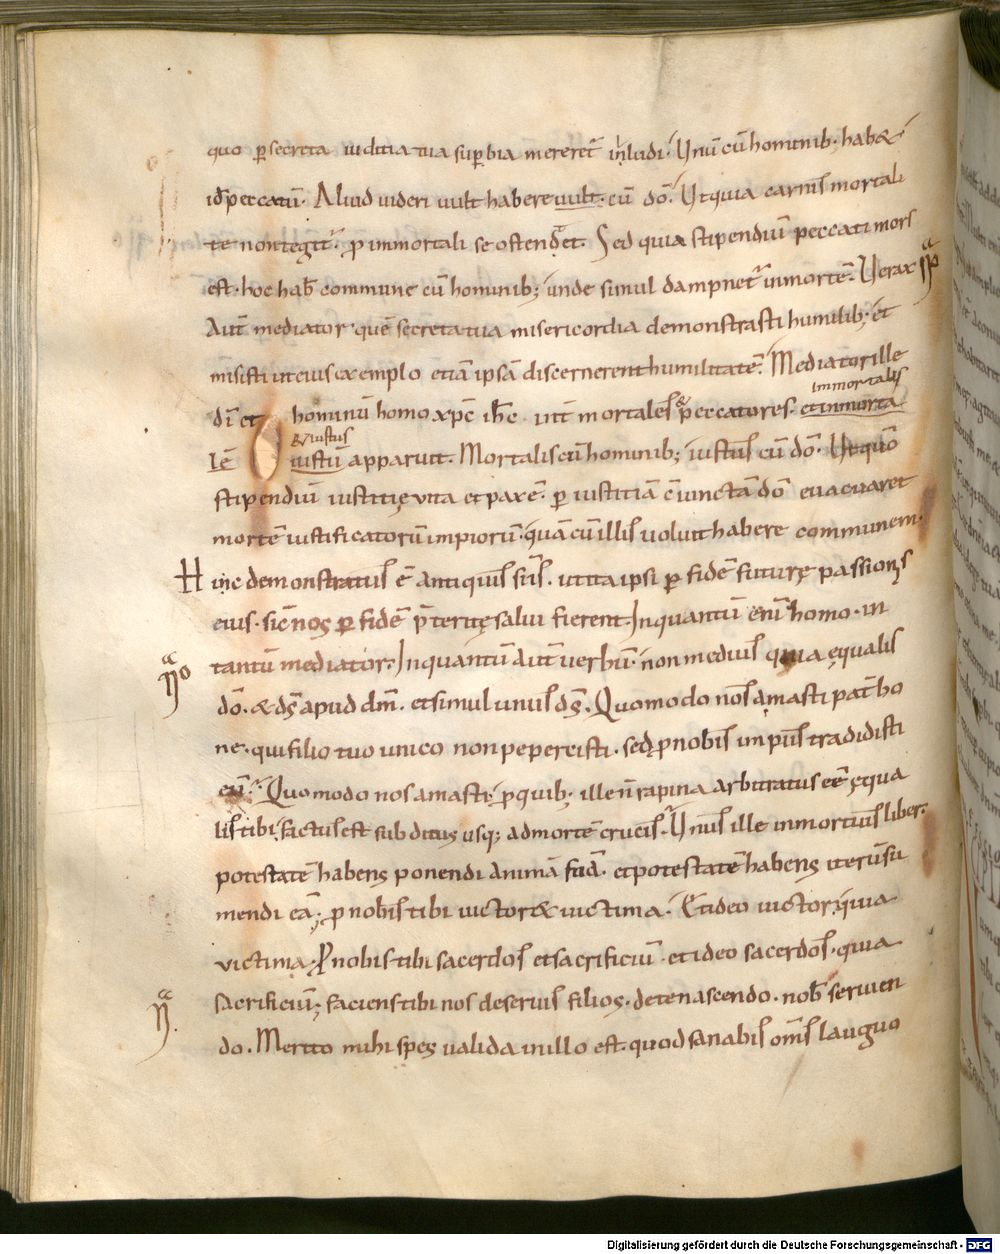 quo p̲ secreta iuditia tua sup̲bia mereret᷑ inludi. Unū cū hominib; hab&
id ÷ peccatū. Aliud uideri uult habere uult. cū dō. Ut quia carnis mortali
te non tegit᷑. p̱ immortali se ostendet. Sed quia stipendiū peccati mors
est. hoc hab& commune cū hominib; unde simul dampnet᷑ inmortē. Uerax
Autē mediator quē secreta tua misericordia demonstrasti humilib; et
misisti ut eius exemplo etiā ipsā discernerent humilitatē. Mediator ille
immortalis
dī et hominū homo xpc̄ ihc̄ int̄ mortales & peccatores. et inmorta
& iustus
lē iustū apparuit. Mortalis cū hominib; iustus cū dō. Ut quō
stipendiū iustitię uita et pax ē. p̲ iustitiā c̄iunctā dō euacuaret
mortē iustificatorū impiorū. quā cū illis uoluit habere communem.
Hinc demonstratus ē antiquis scīs. ut ita ipsi p̲ fidē futurę passionis
eius. sic nos p̲ fidē p̄teritę salui fierent. Inquantū enī homo. in
tantū mediator. Inquantū aut̄ uerbū. non medius quia ęqualis
dō. & ds̄ apud dm̄. et simul unus ds̄. Quomodo nos amasti pat̄ bo
ne. qui filio tuo unico non pepercisti. sed p̱ nobis impiis tradidisti
eū. Quomodo nos amasti p̱ quib; ille n̄ rapina arbitratus eē ęqua
lis tibi factus est subditus usq; ad mortē crucis. Unus ille inmortuis liber.
potestatē habens ponendi animā suā. et potestatē habens iterū su
mendi eā; p̱ nobis tibi uictor & uictima. Et ideo uictor quia
victima. P̱ nobis tibi sacerdos et sacrificiū. et ideo sacerdos. quia
sacrificiū; faciens tibi nos deseruis filios. de te nascendo. nob̄ seruien
do. Merito mihi spes ualida in illo est. quod sanabis om̄s languo
Digitalisierung gefördert durch die Deutsche Forschungsgemeinschaft - DFG